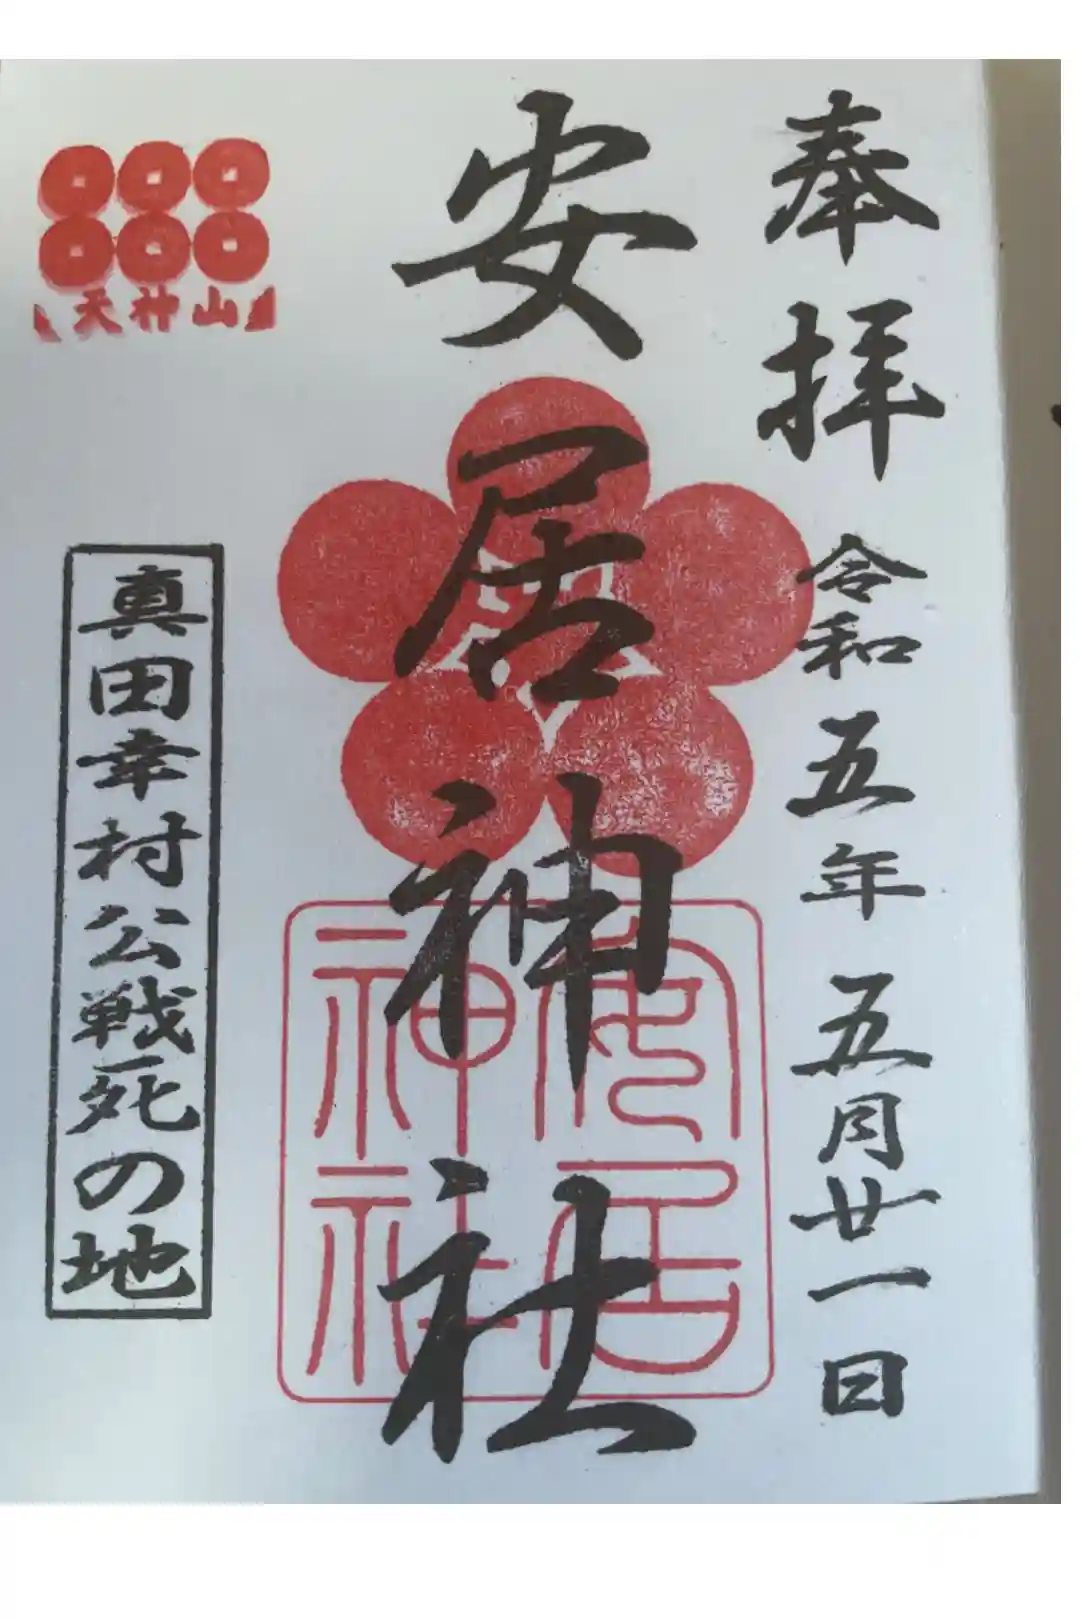 奉拝
令和五年五月廿一日
安居神社
安居
神社
天神山
真田幸村公戦死の地